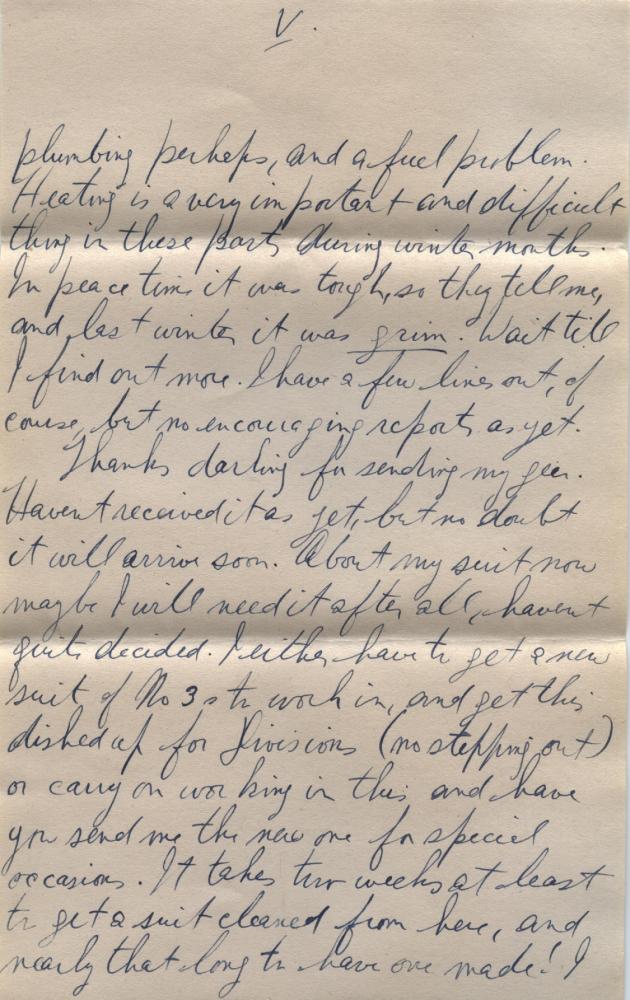 V.
plumbing perhaps, and a fuel problem.
Heating is a very important and difficult
thing in these parts during winter months.
In peace time it was tough, so they tell me,
and last winter it was grim. Wait till
I find out more. I have a few lines out, of
course, but no encouraging reports as yet.
Thanks darling for sending my gear.
Havent received it as yet, but no doubt
it will arrive soon. About my suit now
maybe I will need it after all, havent
quite decided. I either have to get a new
suit of No 3s to work in, and get this
dished up for Divisions (no stepping out)
or carry on working in this and have
you send me the new one for special
occasions. It takes two weeks at least
to get a suit cleaned from here, and
nearly that long to have one made! I